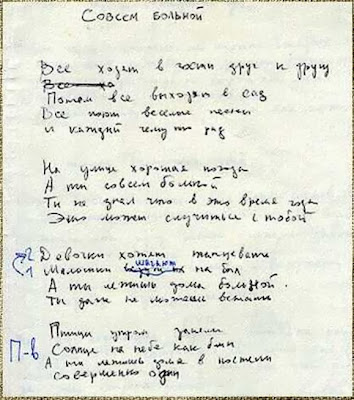 Совсем больной
Все ходят в гости друг к другу
Потом все выходят в сад
Все поют веселые песни
и каждый чему то рад
На улице хорошая погода
А ты совсем больной
Ты не знал что в это время года
Это может случиться с тобой
2 Девочки хотят танцевать
шагают
1 Мальчики на бал
А ты лежишь дома больной.
Ты даже не можешь встать
Птицы утром запели
П-в Солнце на небе как блин
А ты лежишь дома в постели
совершенно один